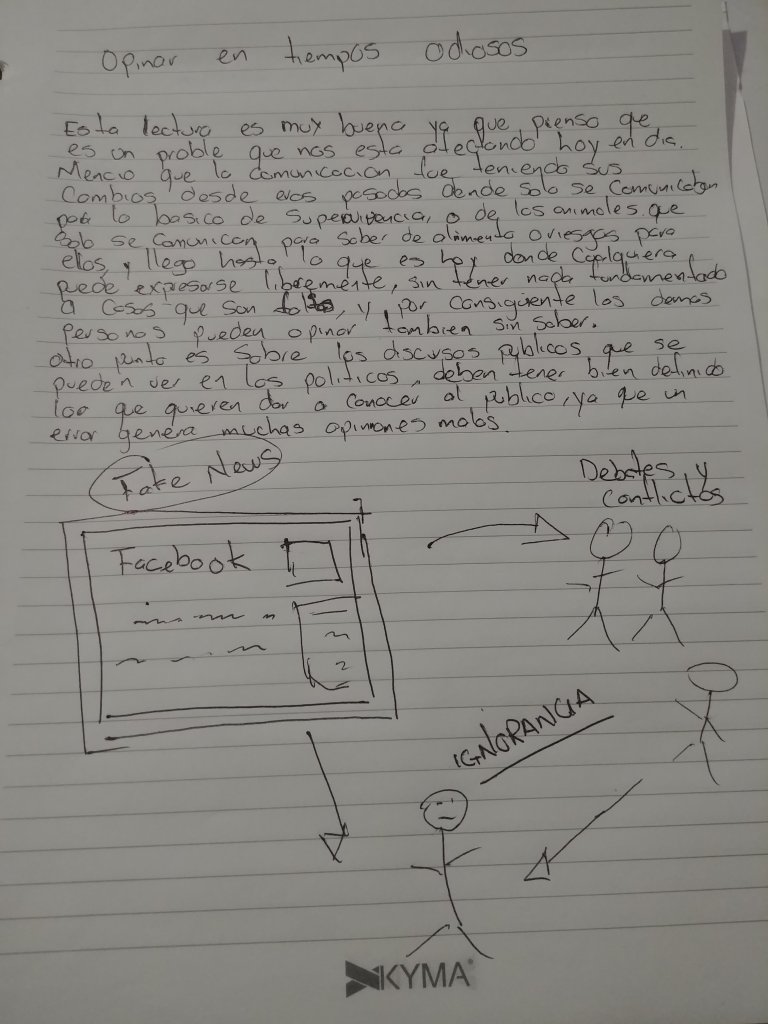 Opinar en tiempos odiosos
Esta lectura es muy buena ya que pienso qe
es un proble que nos esta afectando hoy en dia.
Mencio que la comunicacion fue teniendo sus
Cambios desde eras pasadas donde solo se comunicaban
para lo basico de supervivencia, o de los animales que
solo se comunican para saber de alimento o riesgos para
ellos, y llego hasta lo que es hoy donde cualquiera
puede expresarse libremente, sin tener nada fundamentado
a cosas que son falsas, y por consiguente las demas
personas pueden opinar tambien sin saber.
otro punto es sobre los discusos publicos que se
pueden ver en los politicos, deben tener bien definido
loo que quieren dar a conocer al publico, ya que un
error genera muchas opiniones malas.
Fake News
Debates y
conflictos
Facebook
IGNORANCIA
KYMA